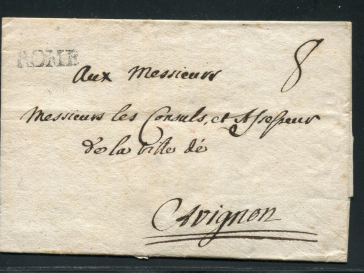 ROME
Aux Messieurs 8
Messieurs les Consuls, et Assesseur
de la ville dé
Avignon